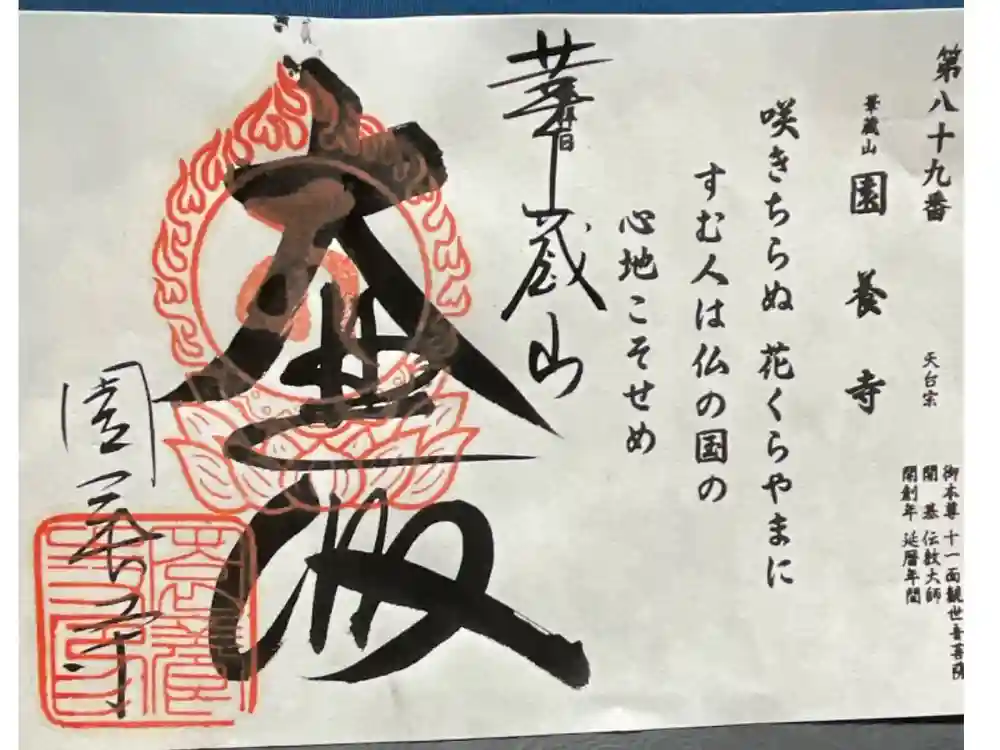 第八十九番
天台宗
御本尊 十一面観世音菩薩
開 基 伝教大師
開創年 延暦年間
華蔵山
園養寺
咲きちらぬ 花くらやまに
すむ人は仏の国の
心地こそせめ
華蔵山
園養寺